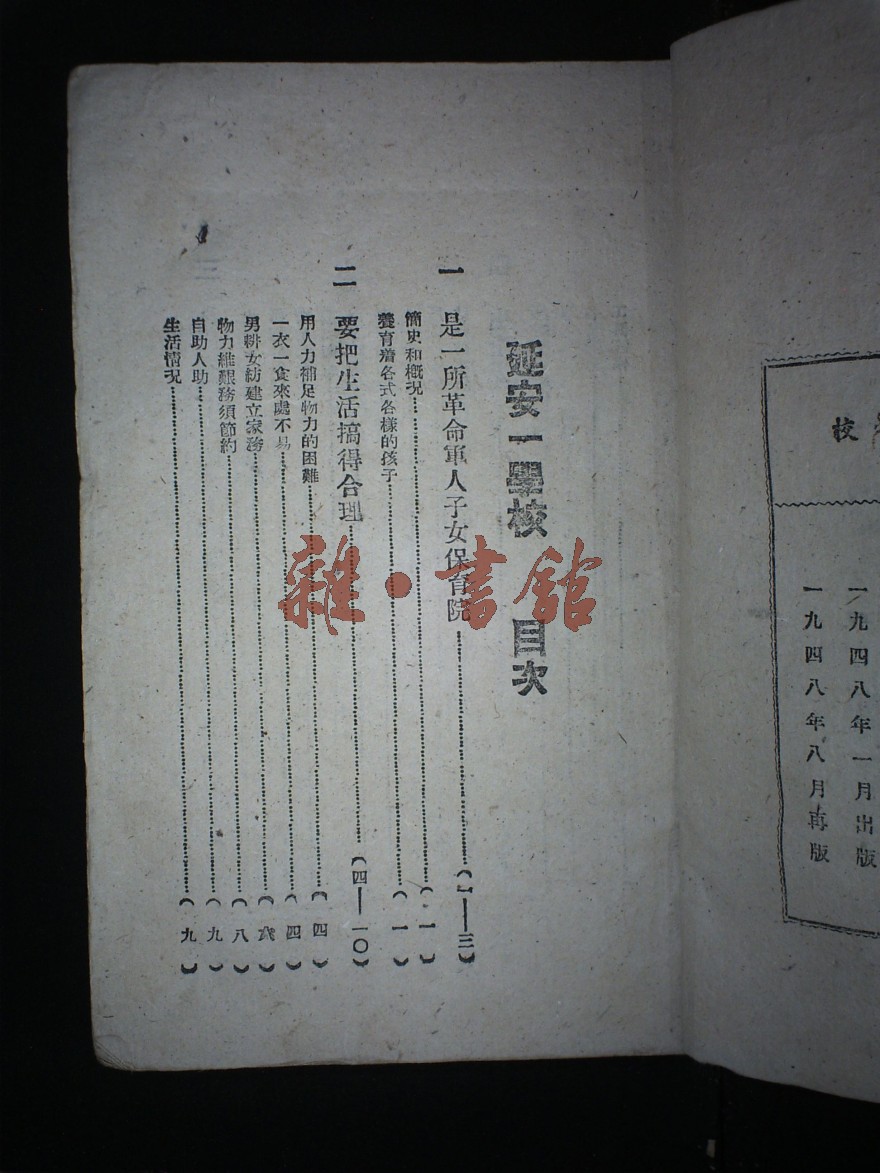 校
一九四八年一月出版
一九四八年八月再版
延安一學校　目次
一　是一所革命軍人子女保育院……（一——三）
簡史和概況……（一）
養育着各式各樣的孩子……（一）
二　要把生活搞得合理……（四——一〇）
用人力補足物力的困難……（四）
一衣一食來處不易……（四）
男耕女紡建立家務……（）
物力維艱務須節約……（八）
自助人助……（九）
生活情况……（九）
雜·書館